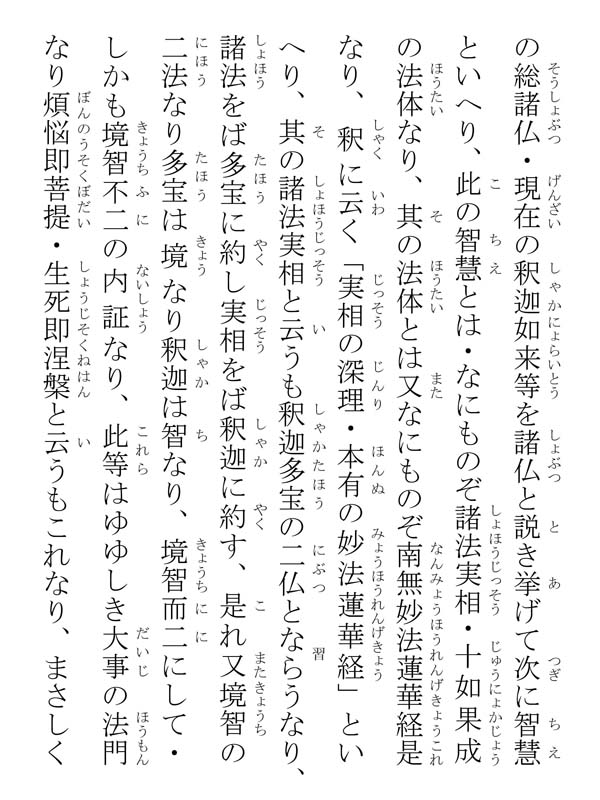 の総諸仏・現在の釈迦如来等を諸仏と説き挙げて次に智慧
といへり、此の智慧とは・なにものぞ諸法実相・十如果成
の法体なり、其の法体とは又なにものぞ南無妙法蓮華経是
なり、釈に云く「実相の深理・本有の妙法蓮華経」とい
へり、其の諸法実相と云うも釈迦多宝の二仏とならうなり、
諸法をば多宝に約し実相をば釈迦に約す、是れ又境智の
二法なり多宝は境なり釈迦は智なり、境智而二にして・
しかも境智不二の内証なり、此等はゆゆしき大事の法門
なり煩悩即菩提・生死即涅槃と云うもこれなり、まさしく